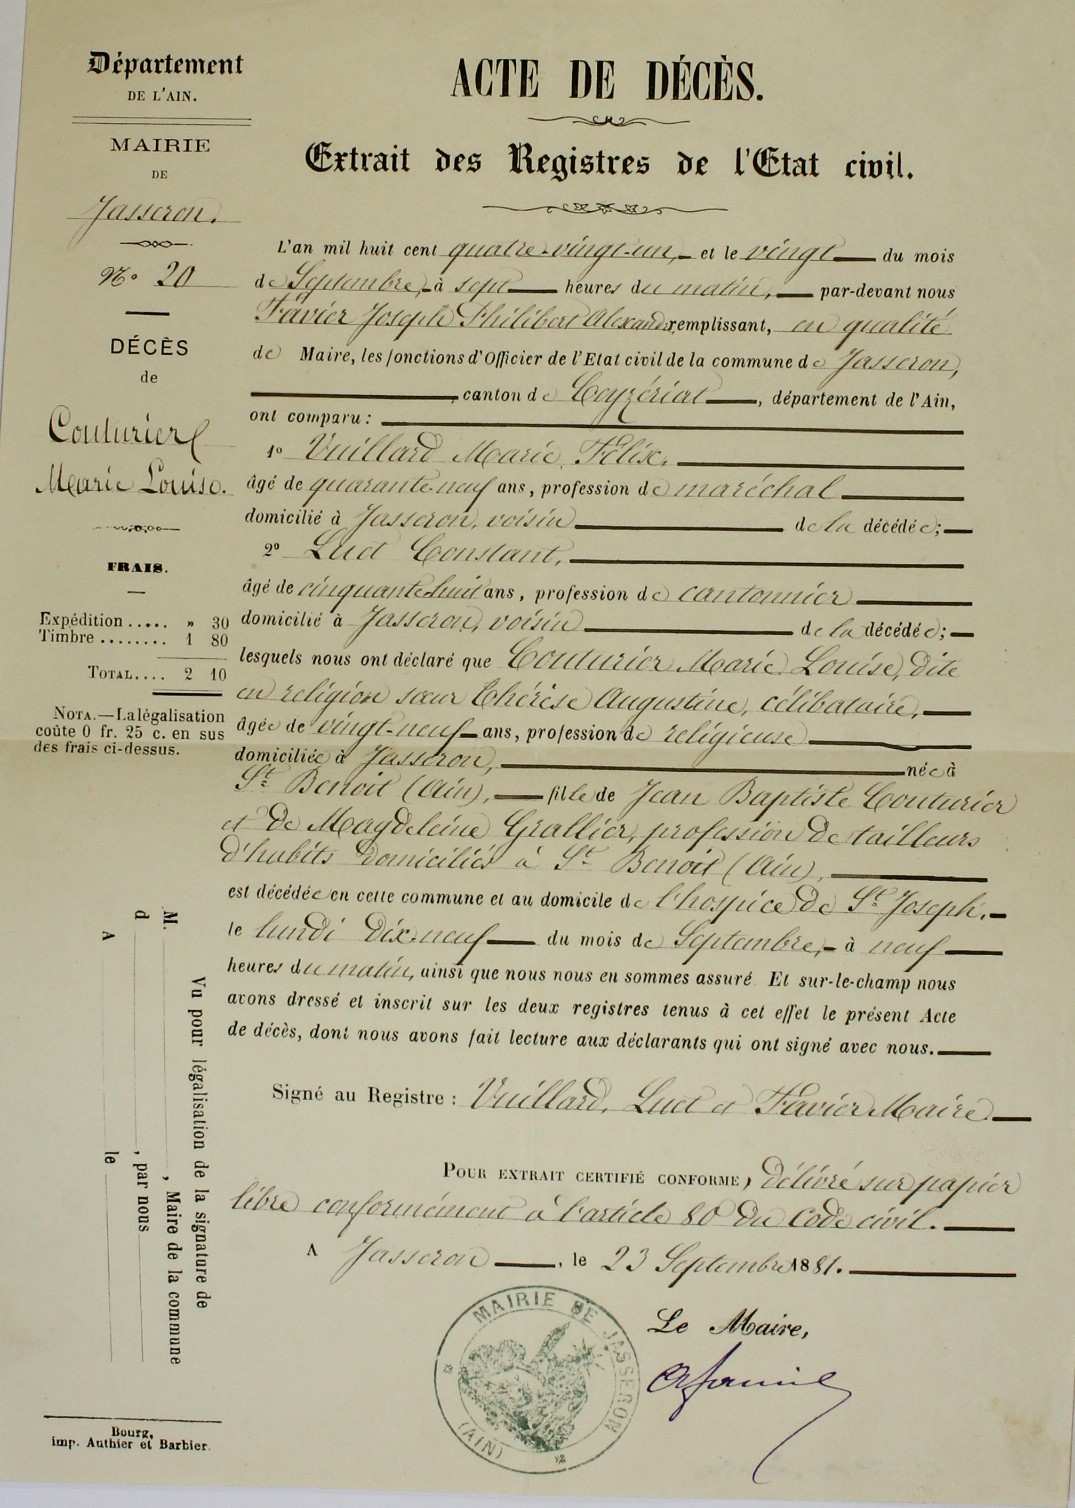 Département
DE L'AIN.
MAIRIE
DE
Jasseron.
N° 20
DÉCÈS
de
Couturier
Marie Louise.
FRAIS.
Expédition..... » 30
Timbre........ 1 80
TOTAL.... 2 10
NOTA.—La légalisation
coûte 0 fr. 25 c. en sus
des frais ci-dessus.
ACTE DE DÉCÈS.
Extrait des Registres de l'Etat civil.
L'an mil huit cent quatre-vingt-un, et le vingt du mois
de Septembre, à sept heures du matin, par-devant nous
Favier Joseph Philibert Alexandre remplissant, en qualité
de Maire, les fonctions d'Officier de l'Etat civil de la commune de Jasseron,
, canton de Ceyzériat, département de l'Ain,
ont comparu :
1° Vuillard Marie Félix,
âgé de quarante-neuf ans, profession de maréchal
domicilié à Jasseron, voisin de la décédée;
2° Luct Constant,
âgé de cinquante-huit ans, profession de cantonnier
domicilié à Jasseron, voisin de la décédée;
lesquels nous ont déclaré que Couturier Marie Louise, dite
en religion sœur Thérèse Augustine, célibataire,
âgée de vingt-neuf ans, profession de religieuse
domiciliée à Jasseron, née à
St Benoit (Ain), fille de Jean Baptiste Couturier
et de Magdeleine Grallier, profession de tailleurs
d'habits domiciliés à St Benoit (Ain),
est décédée en cette commune et au domicile de l'hospice de St Joseph,
le lundi dix-neuf du mois de Septembre, à neuf
heures du matin, ainsi que nous nous en sommes assuré. Et sur-le-champ nous
avons dressé et inscrit sur les deux registres tenus à cet effet le présent Acte
de décès, dont nous avons fait lecture aux déclarants qui ont signé avec nous.
Signé au Registre : Vuillard, Luct et Favier Maire.
POUR EXTRAIT CERTIFIÉ CONFORME, délivré sur papier
libre conformément à l'article 80 du Code civil.
A Jasseron, le 23 Septembre 1881.
Le Maire,
MAIRIE DE JASSERON
(AIN)
Vu pour légalisation de la signature de
M. , Maire de la commune
d , par nous
A le
Bourg,
imp. Authier et Barbier.